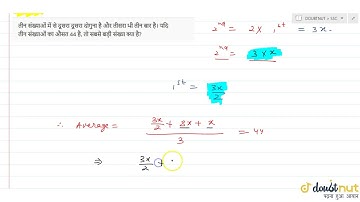 तीन संख्याओं में से दूसरा दूसरा दोगुना है और तीसरा भी तीन बार है। यदि
तीन संख्याओं का औसत 44 है, तो सबसे बड़ी संख्या क्या है?
2nd = 2 × 1st = 3x.
2nd = 3 × x
1st = 3x/2
∴ Average = (3x/2 + 3x + x)/3 = 44
⇒ 3x/2 +
doubtnut
पढ़ना हुआ आसान